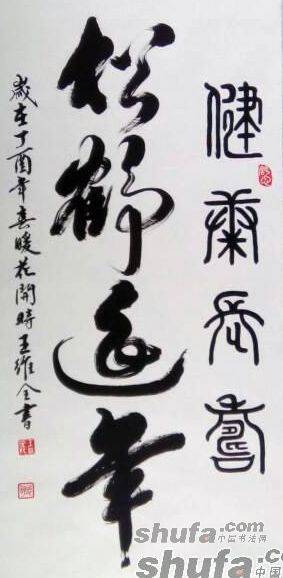 健康长寿
松鹤延年
歲在丁酉年春暖花開時王維全書
shufa.com
中国书法网
shufa.com
中国